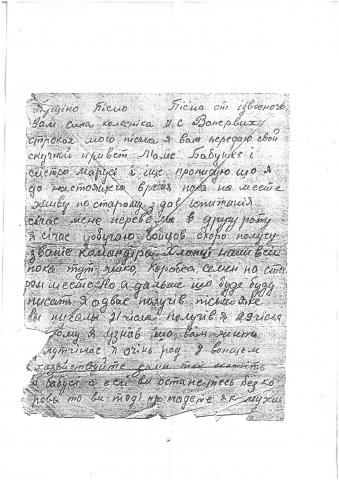 Пущіно Пісмо Пісмо от ізвесного
Вам сина колєсніка И. С Вопервих
строках мого пісма я вам передаю свой
скучний привєт Маме Бабушке і
систре Марусі і іще прописую що я
до настоящего время пока на месте
живу по старому здав іспитанія
січас мене перевели в другу роту
я січас вобучаю бойцов скоро получу
званіє командіра Хлопці наши всі
пока тут яшко, коробка, семен на ста
ром месте. Но а дальше що буде буду
писать я од вас получів пісьмо яке
ви писали 21 чісла получів я 29 чісла
ому я узнав що вам жить
лутчінас я очінь рад
хазяйствуйте сами так як
и бабуся а еслі ви останетесь без ко
рови то ви тоді пропадете як мухи